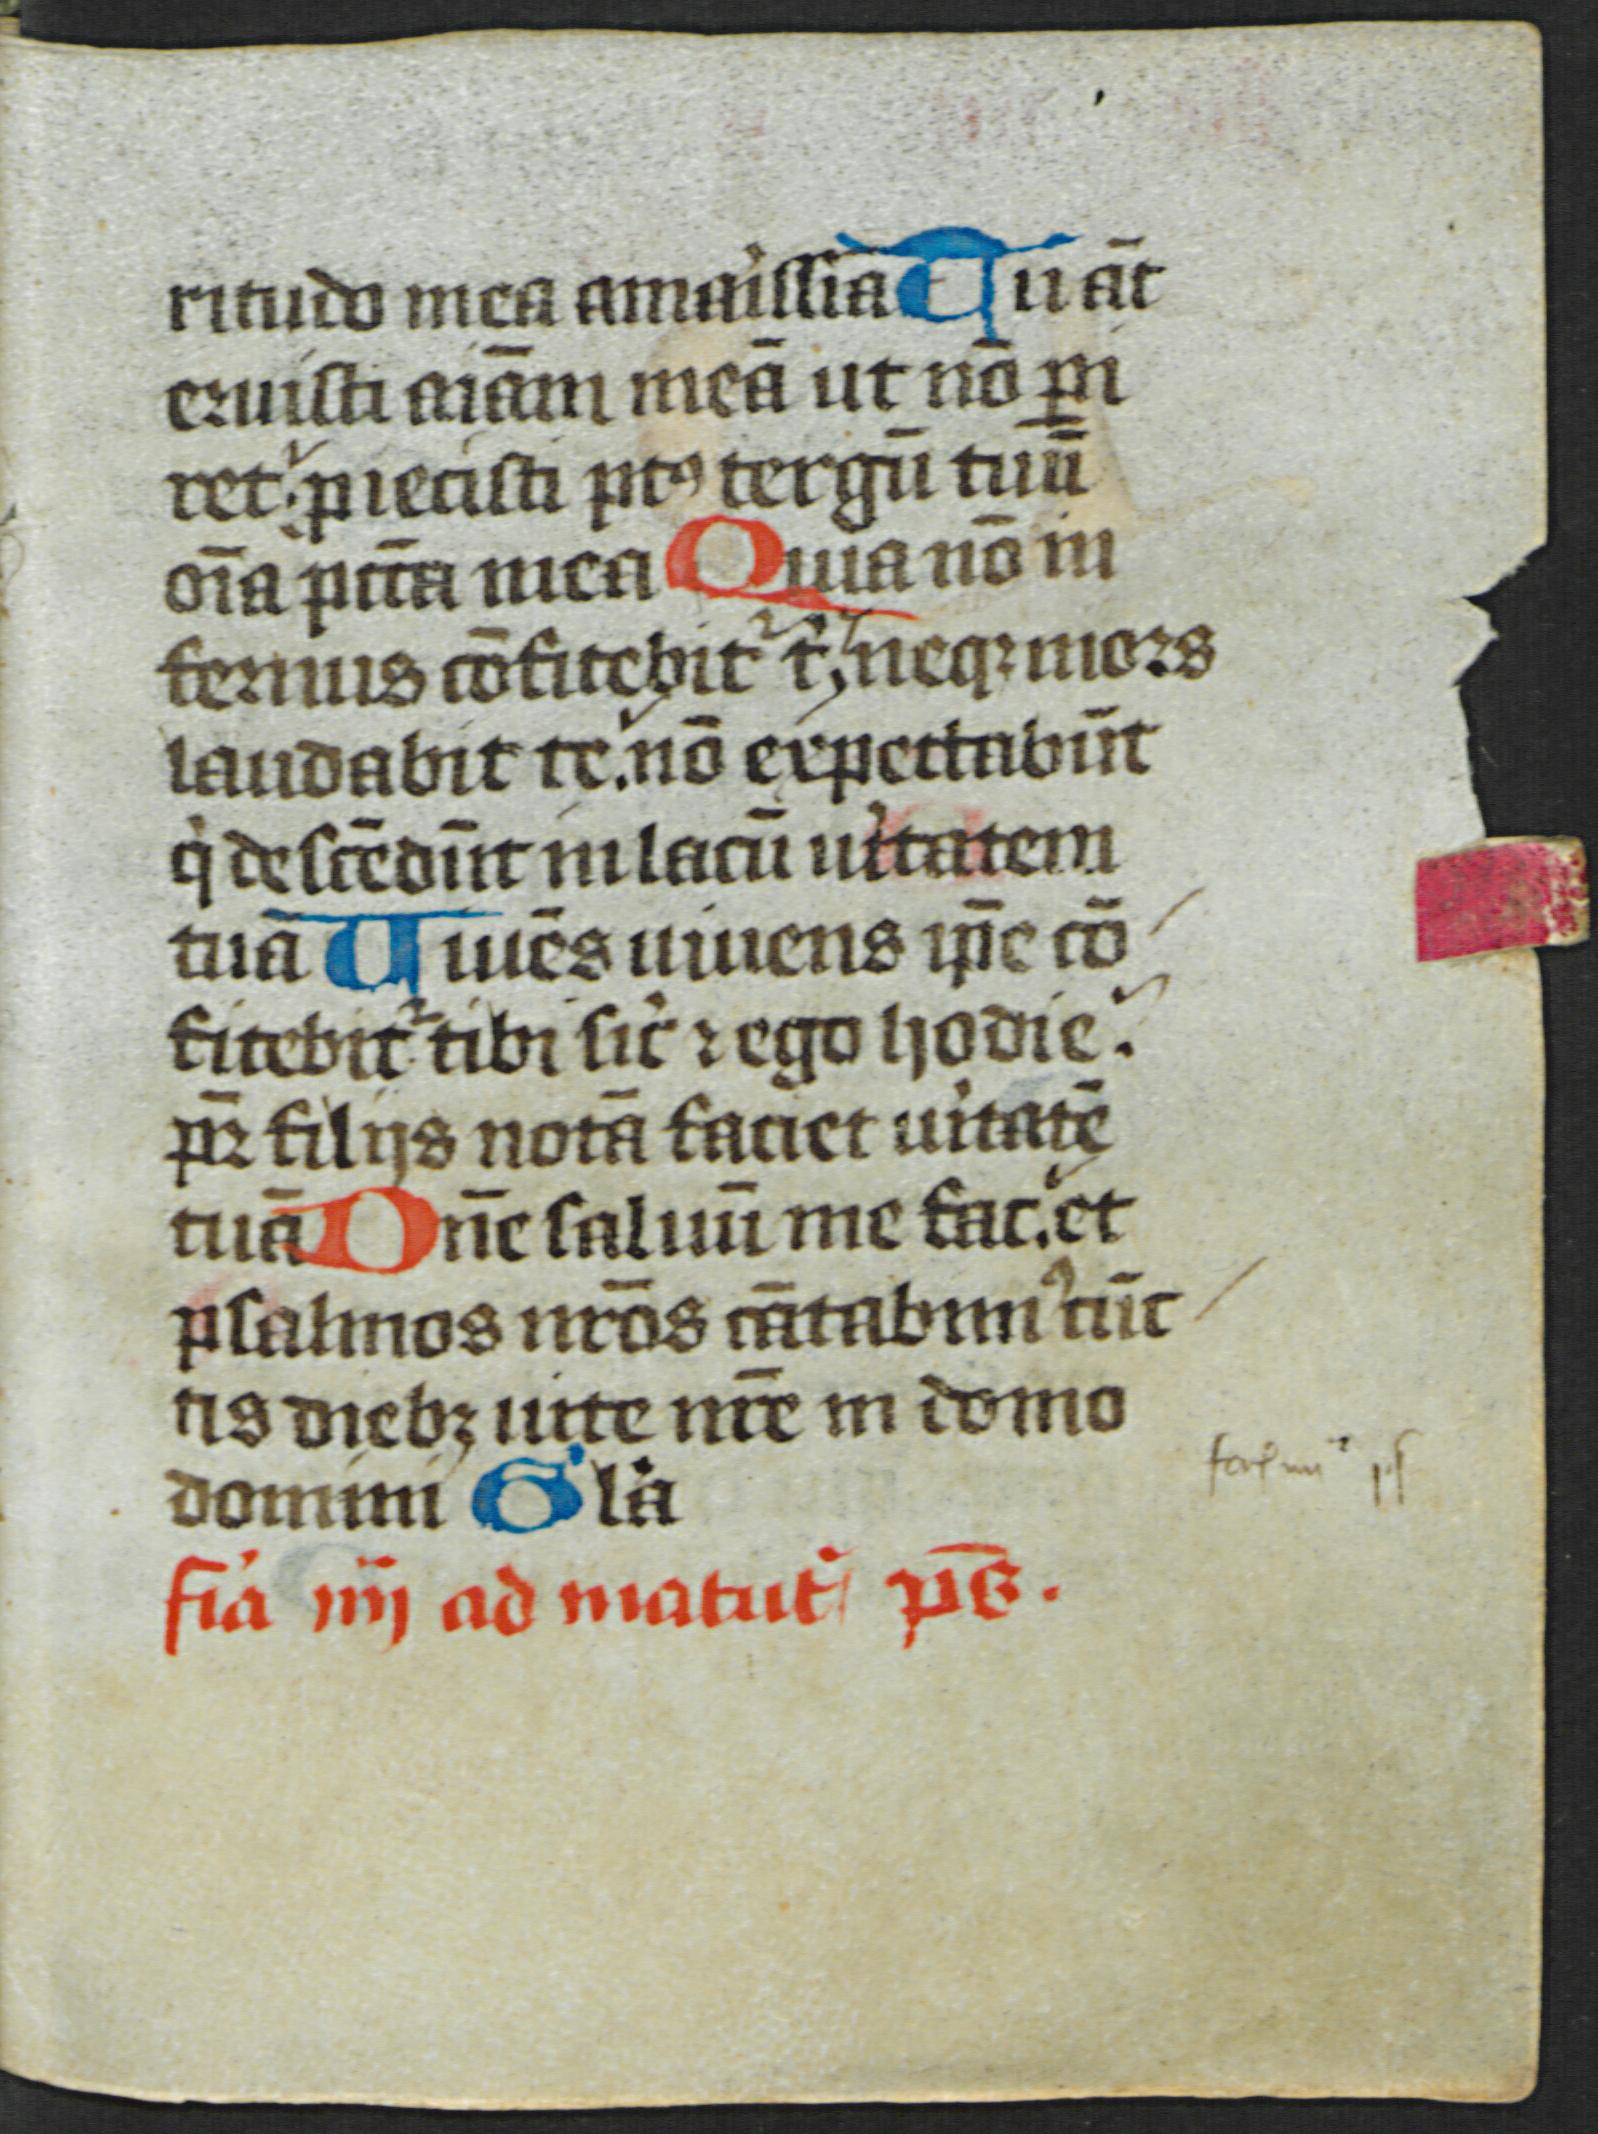 ritudo mea amaiſſia Tu āt
eruiſti aīam meā ut nō ꝑi
ret. ꝓiecisti ptꝰ tergū tuū
oīa pctā mea Quia nō in
fernus cōfitebit᷑ t', neqꝫ mors
laudabit te. nō expectabūt
q' deſcēdūt in lacū u'itatem
tuā Uiuēs uiuens ip̄e cō
fitebit᷑ tibi ſic' ⁊ ego hodie.
pr̄ filijs notā faciet u'itatē
tuā Dn̄e ſaluū me fac. et
pſalmos nr̄os cātabim' cūc
tis diebꝫ uite nr̄e in domo
domini Gl'a
fi'a iiij ad matut' pꝰ.